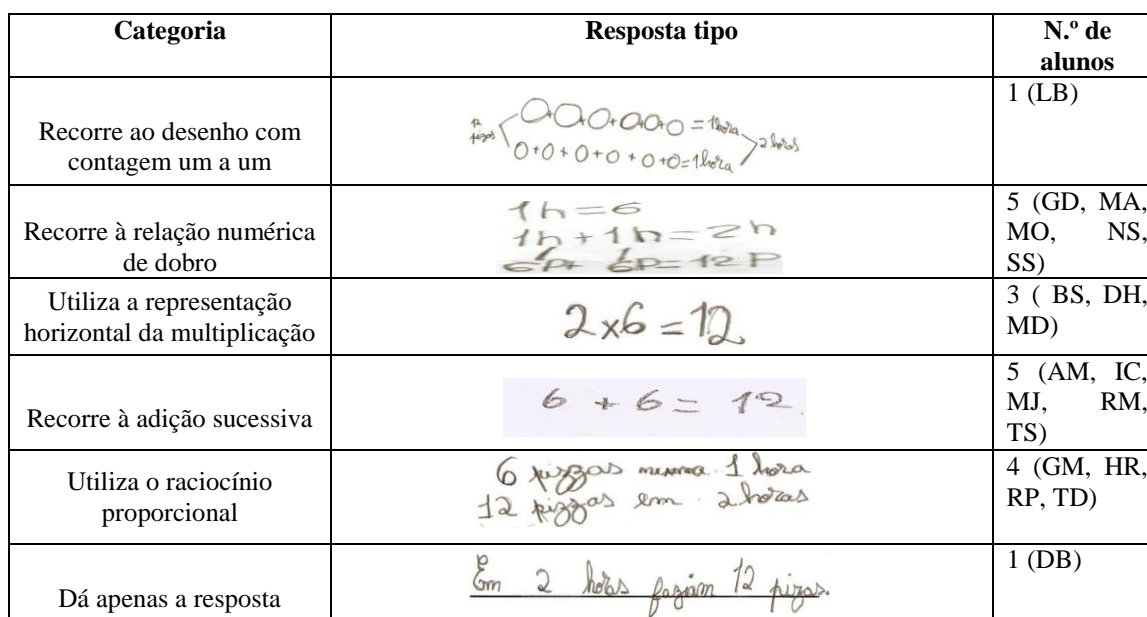 Categoria
Resposta tipo
N.º de
alunos
Recorre ao desenho com
contagem um a um
12
pizas
O+O+O+O+O+O=1hora
O+O+O+O+O+O=1hora
2 horas
1 (LB)
Recorre à relação numérica
de dobro
1h=6
1h+1h=2h
6P+ 6P=12P
5 (GD, MA,
MO, NS,
SS)
Utiliza a representação
horizontal da multiplicação
2x6=12
3 ( BS, DH,
MD)
Recorre à adição sucessiva
6 + 6 = 12
5 (AM, IC,
MJ, RM,
TS)
Utiliza o raciocínio
proporcional
6 pizzas numa 1 hora
12 pizzas em 2 horas
4 (GM, HR,
RP, TD)
Dá apenas a resposta
Em 2 horas faziam 12 pizas.
1 (DB)